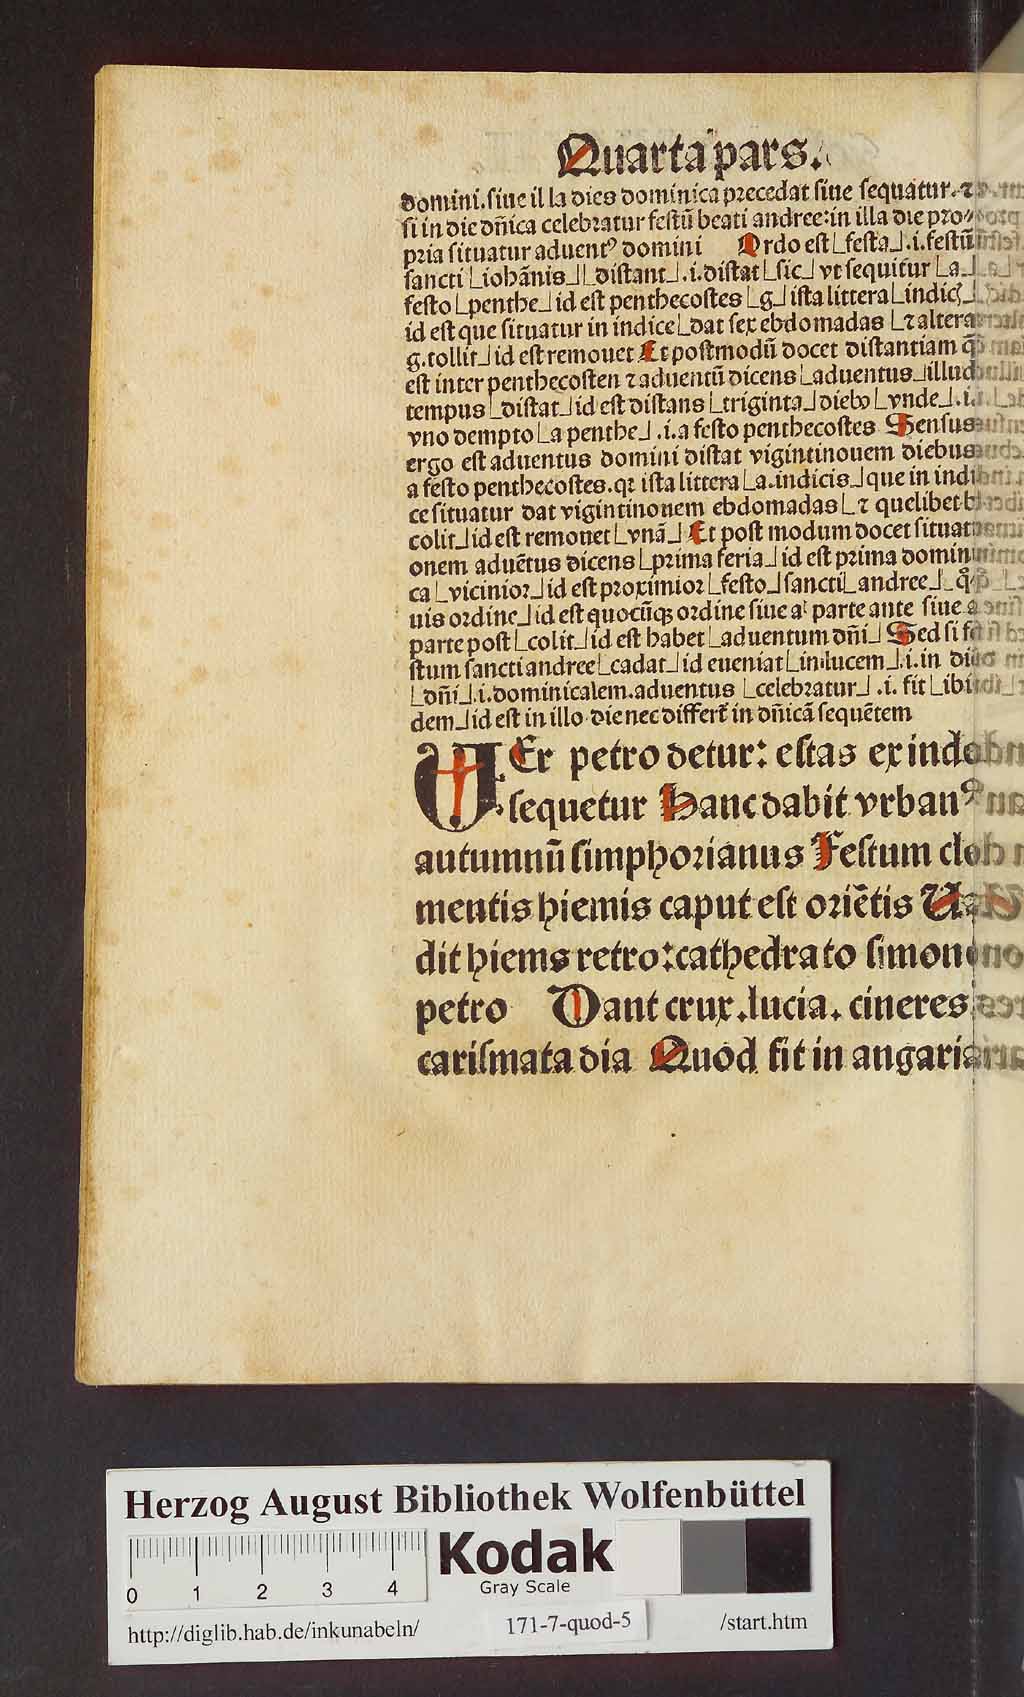 Quarta pars.
domini. siue il la dies dominica precedat siue sequatur. ⁊
si in die dn̄ica celebratur festū beati andree: in illa die pro⸗
pria situatur aduentꝰ domini Ordo est ⌊festa⌋ .i. festū
sancti ⌊iohānis⌋ ⌊distant⌋ .i. distat ⌊sic⌋ vt sequitur ⌊a⌋
festo ⌊penthe⌋ id est penthecostes ⌊g⌋ ista littera ⌊indic̄⌋
id est que situatur in indice ⌊dat sex ebdomadas ⌊⁊ altera
g. tollit⌋ id est remouet Et postmodū docet distantiam q̄
est inter penthecosten ⁊ aduentū dicens ⌊aduentus⌋ illud
tempus ⌊distat⌋ id est distans ⌊triginta⌋ diebꝰ ⌊vnde⌋ .i.
vno dempto ⌊a penthe⌋ .i. a festo penthecostes Sensus
ergo est aduentus domini distat vigintinouem diebus
a festo penthecostes. qꝛ ista littera ⌊a. indicis⌋ que in indi
ce situatur dat vigintinouem ebdomadas ⌊⁊ quelibet b
colit⌋ id est remouet ⌊vnā⌋ Et post modum docet situati
onem aduētus dicens ⌊prima feria⌋ id est prima domini
ca ⌊vicinior⌋ id est proximior ⌊festo⌋ sancti ⌊andree⌋ ⌊q̊
uis ordine⌋ id est quocūqꝫ ordine siue a parte ante siue a
parte post ⌊colit⌋ id est habet ⌊aduentum dn̄i⌋ Sed si fe
stum sancti andree ⌊cadat⌋ id eueniat ⌊in lucem⌋ .i. in di
⌊dn̄i⌋ .i. dominicalem. aduentus ⌊celebratur⌋ .i. fit ⌊ibi
dem⌋ id est in illo die nec differt̄ in dn̄icā sequētem
VEr petro detur: estas exinde
sequetur Hanc dabit vrbanꝰ
autumnū simphorianus Festum cle
mentis hiemis caput est oriētis Ce
dit hiems retro: cathedrato simone
petro Dant crux. lucia. cineres
carismata dia Quod sit in angaria
Herzog August Bibliothek Wolfenbüttel
0 1 2 3 4
Kodak
Gray Scale
http://diglib.hab.de/inkunabeln/ 171-7-quod-5 /start.htm